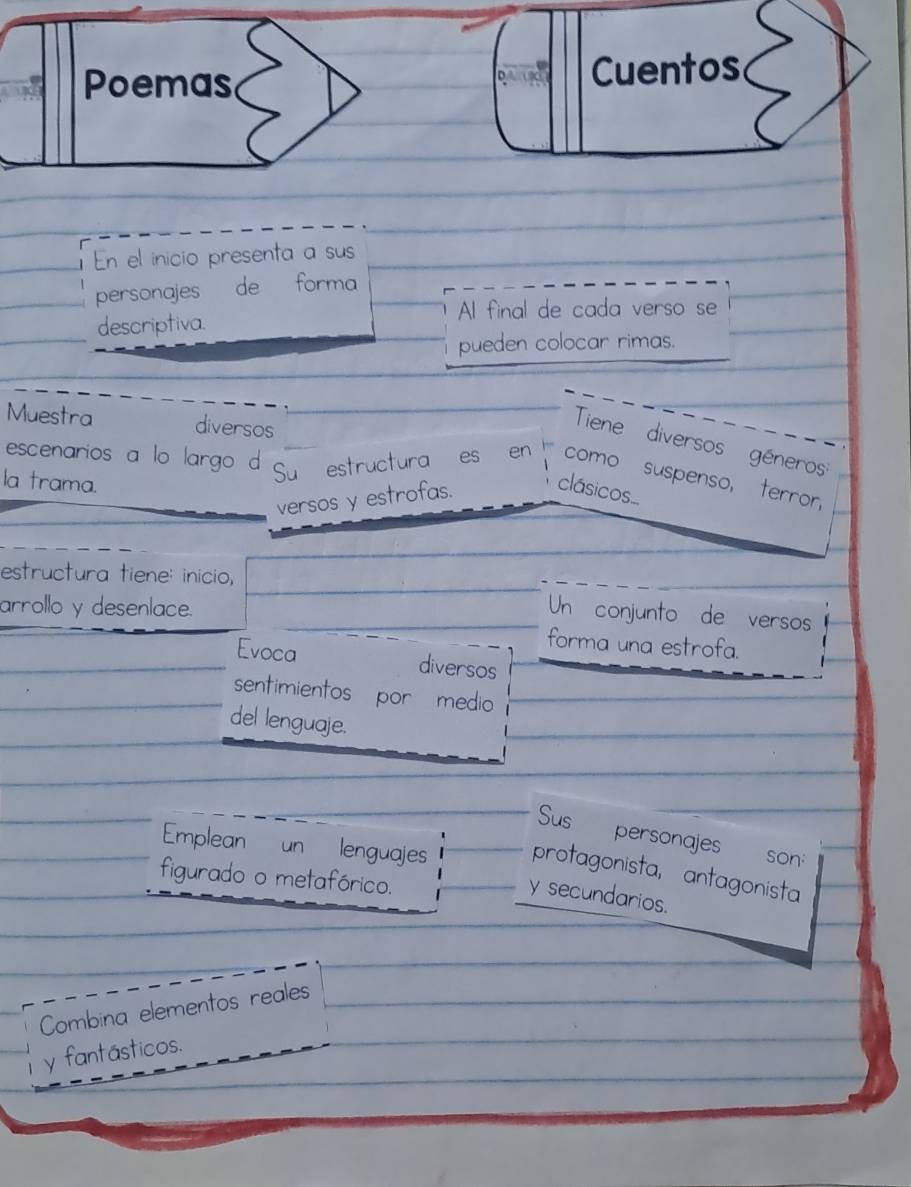 Poemas
Cuentos
En el inicio presenta a sus
personajes de forma
descriptiva.
Al final de cada verso se
pueden colocar rimas.
Muestra diversos
escenarios a lo largo d
la trama.
Su estructura es en
versos y estrofas.
Tiene diversos géneros:
como suspenso, terror,
clásicos...
estructura tiene: inicio,
arrollo y desenlace.
Un conjunto de versos
forma una estrofa.
Evoca diversos
sentimientos por medio
del lenguaje.
Emplean un lenguajes
figurado o metafórico.
Sus personajes son:
protagonista, antagonista
y secundarios.
Combina elementos reales
y fantásticos.